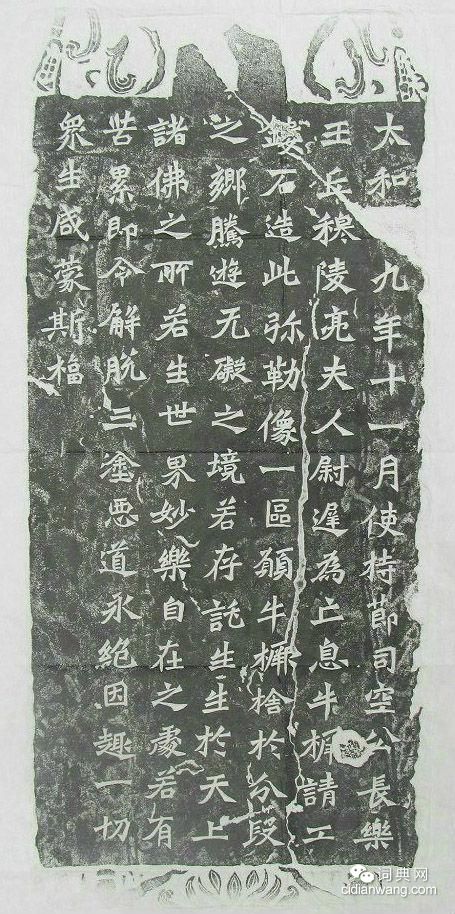 太和九年十一月使持節司空公長樂
王丘穆陵亮夫人尉遲為亡息牛橛請工
鏤石造此弥勒像一區願牛橛捨於分段
之鄉騰遊无礙之境若存託生生於天上
諸佛之所若生世界妙樂自在之處若有
苦累即令解脫三塗惡道永絕因趣一切
眾生咸蒙斯福
词典网
cidianwang.com